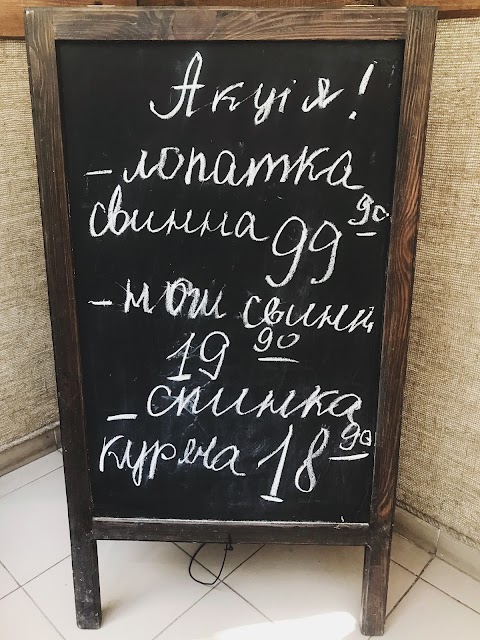 Акція!
- лопатка
свинна 99 90
- ноги свинні
19 90
- спинка
куряча 18 90